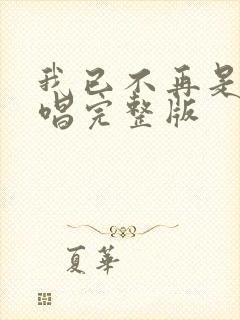 我已不再是
唱完整版
夏華